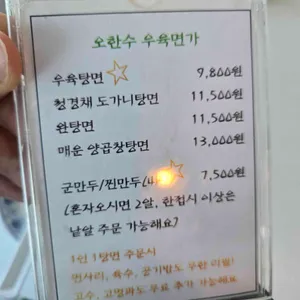 오한수 우육면가
우육탕면 9,800원
청경채 도가니탕면 11,500원
완탕면 11,500원
매운 양곱창탕면 13,000원
군만두/찐만두 7,500원
(혼자오시면 2알, 한접시 이상은
낱알 주문 가능해요?
1인 1탕면 주문시
면사리, 육수, 공기밥도 무한 리필!
무료 추가 가능해요